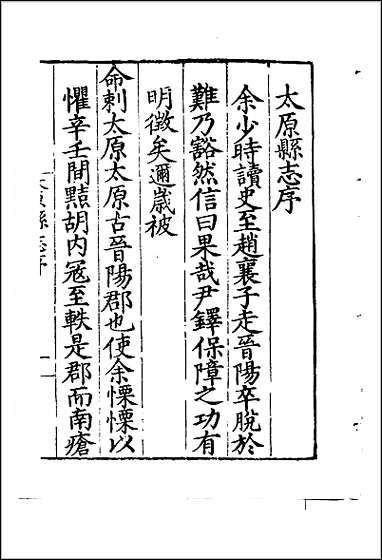 太原縣志序
余少時讀史至趙襄子走晉陽卒脫於
難乃豁然信曰果哉尹鐸保障之功有
明徵矣邇歲被
命剌太原太原古晉陽郡也使余慄慄以
懼辛壬間黠胡内冦至軼是郡而南瘡
太原縣志序
一